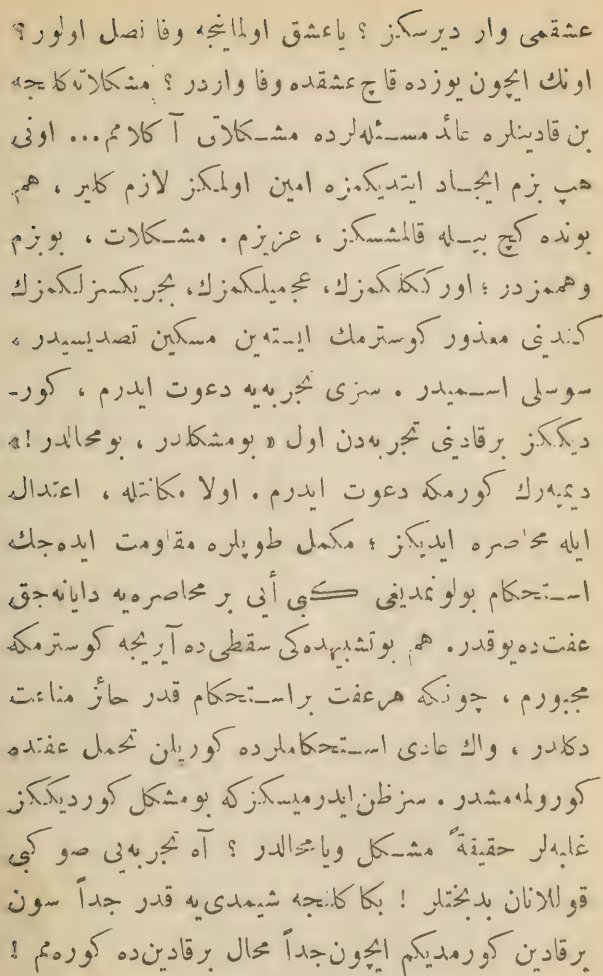 عشقمی وار دیرسکز ؟ یاعشق اولماینجه وفا نصل اولور ؟
اونك ایچون یوزده قاچ عشقده وفا واردر ؟ مشکلاته کلنجه
بن قادینلره عائد مسئله‌لرده مشکلاتی آ کلامم... اونی
هپ بزم ایجاد ایتدیکمزه امین اولمکز لازم کلیر ، هم
بونده کچ بیله قالمشسکز ، عزیزم . مشکلات ، بوبزم
وهممزدر ؛ اورککلکمزك، عجمیلکمزك، بجریکسزلکمزك
کندینی معذور کوسترمك ایسته‌ین مسکین تصدیسیدر ،
سوسلی اسمیدر . سزی تجربه‌یه دعوت ایدرم ، کور-
دیککز برقادینی تجربه‌دن اول « بومشکلدر ، بومحالدر !»
دیمیه‌رك کورمکه دعوت ایدرم . اولا مکانتله ، اعتدال
ایله محاصره ایدیکز ؛ مکمل طوپلره مقاومت ایده‌جك
استحکام بولونمدیغی کبی أیی بر محاصره‌یه دایانه‌جق
عفت‌ده‌یوقدر . هم بوتشبیهده‌کی سقطی‌ده آیریجه کوسترمکه
مجبورم ، چونکه هرعفت براستحکام قدر حائز مناعت
دکلدر ، واك عادی استحکاملرده کوریلن تحمل عفتده
کورولمه‌مشدر . سزظن‌ایدرمیسکزکه بومشکل کوردیککز
غلبه‌لر حقیقةً مشکل ویامحالدر ؟ آه تجربه‌یی صو کبی
قوللانان بدبختلر ! بکا کلنجه شیمدی‌یه قدر جداً سون
برقادین کورمدیکم ایچون‌جداً محال برقادین‌ده کوره‌مم !